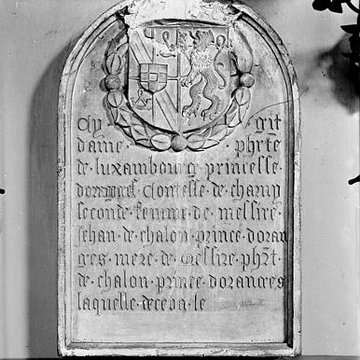 Cy git
dame phrte
de luxambourg princesse
dorenges Contesse de charny
seconde femme de messire
Jehan de chalon prince doran
ges mere de messire phrt
de chalon prince doranges
laquelle deceda le